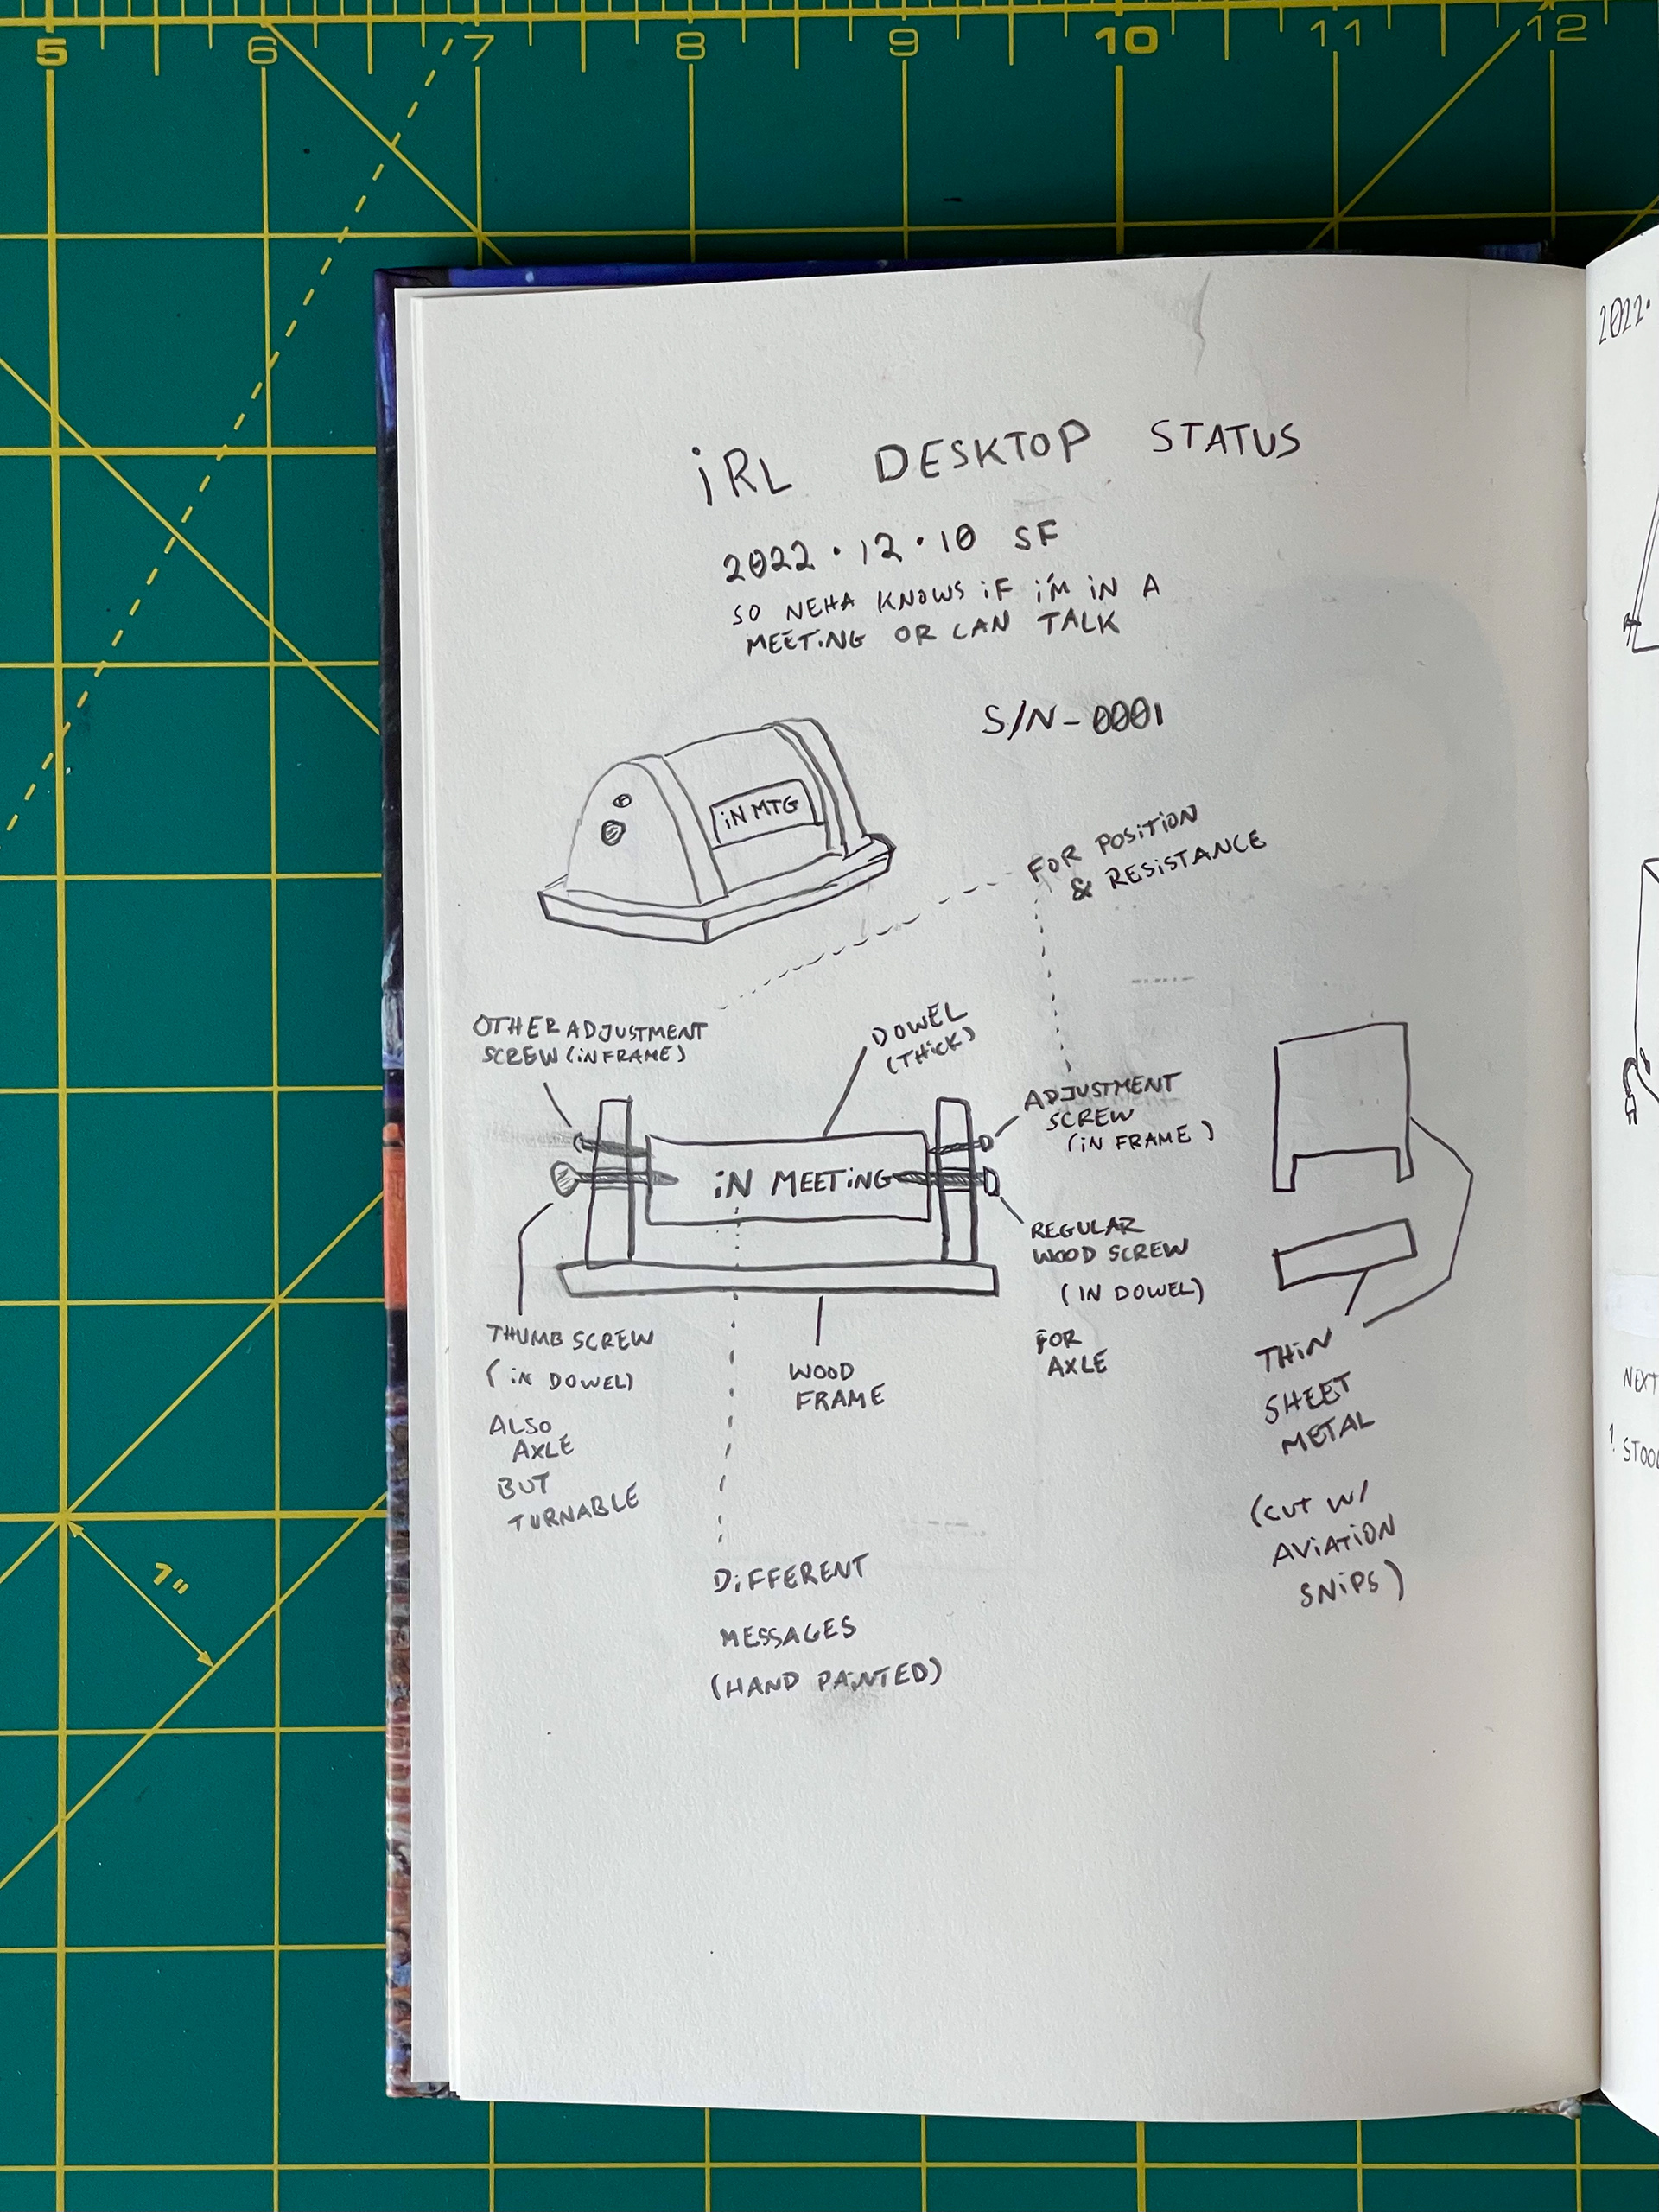 5 6 7 8 9 10 11 12
iRL DESKTOP STATUS
2022・12・10 SF
SO NEHA KNOWS iF i'M iN A
MEETiNG OR CAN TALK
S/N-0001
iN MTG
FOR POSiTiON
& RESiSTANCE
OTHER ADJUSTMENT
SCREW (iN FRAME)
DOWEL
(THiCK)
ADJUSTMENT
SCREW
(iN FRAME)
iN MEETiNG
REGULAR
WOOD SCREW
(IN DOWEL)
FOR
AXLE
THUMB SCREW
(iN DOWEL)
ALSO
AXLE
BUT
TURNABLE
WOOD
FRAME
THiN
SHEET
METAL
(CUT W/
AViATiON
SNiPS)
DiFFERENT
MESSAGES
(HAND PAiNTED)
1"
2022・
NEXT